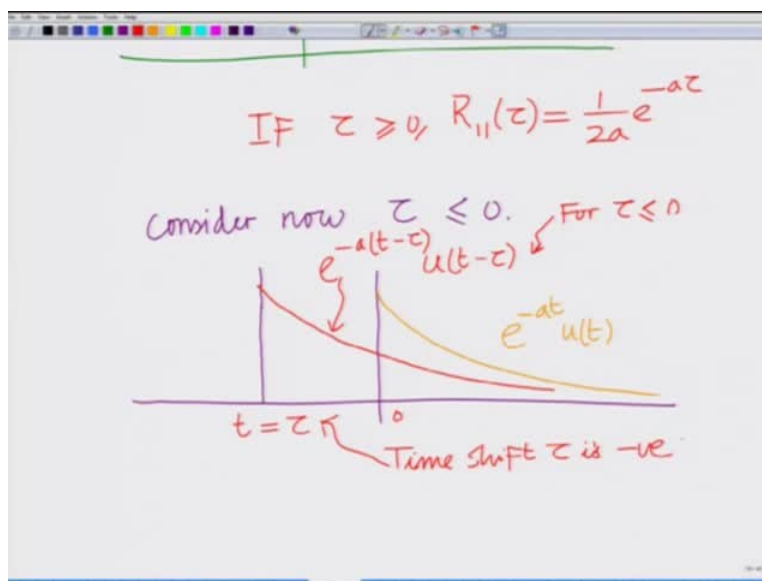 IF τ ≥ 0, R₁₁(τ) = 1/2a e^-aτ
Consider now τ ≤ 0. For τ ≤ 0
e^-a(t-τ) u(t-τ)
e^-at u(t)
t = τ 0
Time shift τ is -ve